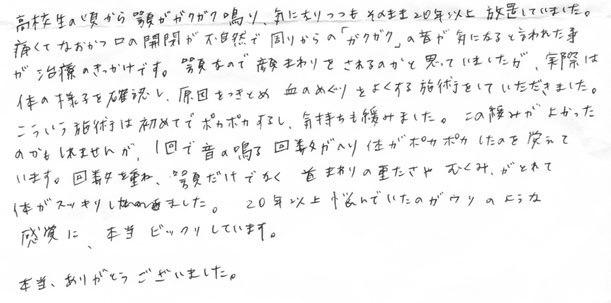 高校生の頃から顎がガクガク鳴り、気になりつつもそのまま20年以上放置していました。
痛くてなおかつ口の開閉が不自然で周りからの「ガクガク」の音が気になると言われた事
が治療のきっかけです。顎なので顔まわりをされるのかと思っていましたが、実際は
体の様子を確認し、原因をつきとめ血のめぐりをよくする施術をしていただきました。
こういう施術は初めてでポカポカするし、気持ちも緩みました。この緩みがよかった
のかもしれませんが、1回で音の鳴る回数がへり体がポカポカしたのを覚えて
います。回数を重ね、顎だけでなく首まわりの重たさやむくみがとれて
体がスッキリしました。20年以上悩んでいたのがウソのような
感覚に、本当ビックリしています。
本当、ありがとうございました。